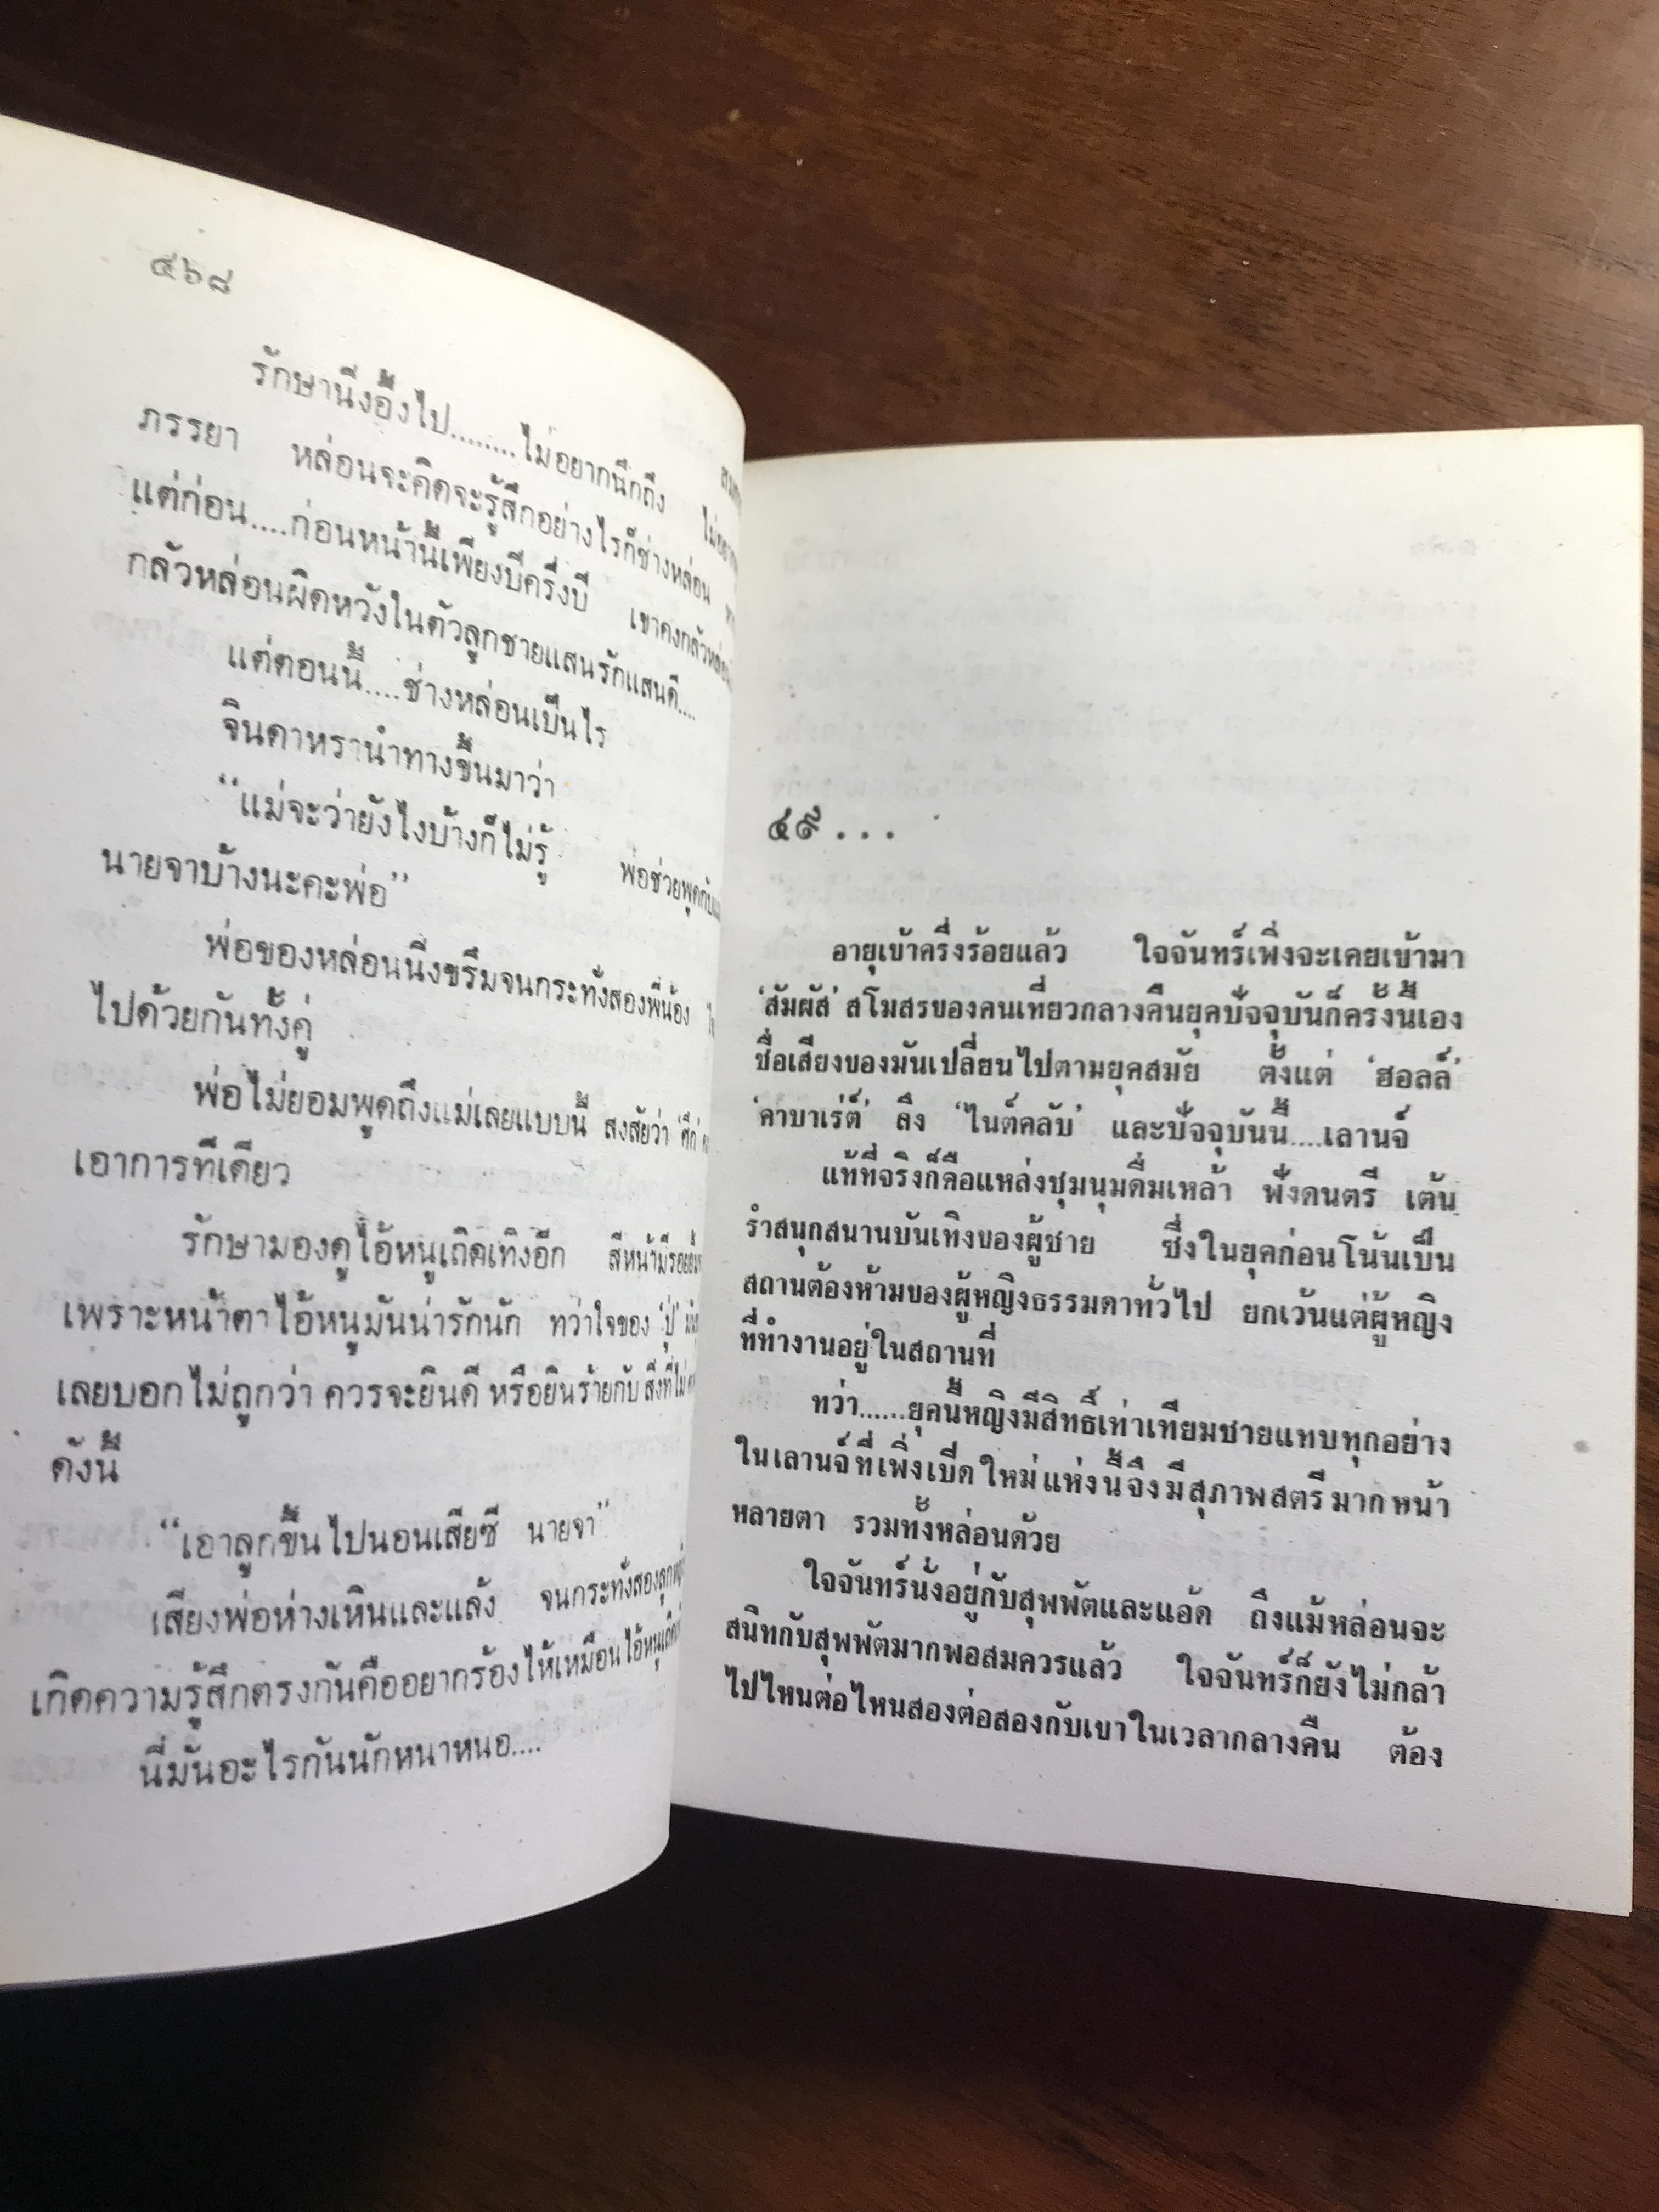 ๔๖๘
รักษานิ่งอึ้งไป........ไม่อยากนึกถึง
ภรรยา หล่อนจะคิดจะรู้สึกอย่างไรก็ช่างหล่อน
แต่ก่อน....ก่อนหน้านี้เพียงปีครึ่งปี เขาคงกลัวหล่อน
กลัวหล่อนผิดหวังในตัวลูกชายแสนรักแสนดี....
แต่ตอนนี้....ช่างหล่อนเป็นไร
จินดาหรานำทางขึ้นมาว่า
“แม่จะว่ายังไงบ้างก็ไม่รู้ พ่อช่วยพูดกับแม่
นายจาบ้างนะคะพ่อ”
พ่อของหล่อนนิ่งขรึมจนกระทั่งสองพี่น้อง
ไปด้วยกันทั้งคู่
พ่อไม่ยอมพูดถึงแม่เลยแบบนี้ สงสัยว่า ‘ศึก’
เอาการทีเดียว
รักษามองดูไอ้หนูเถิดเทิงอีก สีหน้ามีรอย
เพราะหน้าตาไอ้หนูมันน่ารักนัก ทว่าใจของ ‘ปู่’
เลยบอกไม่ถูกว่า ควรจะยินดี หรือยินร้ายกับ สิ่งที่ไม่
ดังนี้
“เอาลูกขึ้นไปนอนเสียซี นายจา”
เสียงพ่อห่างเหินและแล้ง จนกระทั่งสองลูก
เกิดความรู้สึกตรงกันคืออยากร้องไห้เหมือนไอ้หนู
นี่มันอะไรกันนักหนาหนอ....
๔๙...
อายุเข้าครึ่งร้อยแล้ว ใจจันทร์เพิ่งจะเคยเข้ามา
‘สัมผัส’ สโมสรของคนเที่ยวกลางคืนยุคปัจจุบันก็ครั้งนี้เอง
ชื่อเสียงของมันเปลี่ยนไปตามยุคสมัย ตั้งแต่ ‘ฮอลล์’
‘คาบาเร่ต์’ ลึง ‘ไนต์คลับ’ และปัจจุบันนี้....เลานจ์
แท้ที่จริงก็คือแหล่งชุมนุมดื่มเหล้า ฟังดนตรี เต้น
รำสนุกสนานบันเทิงของผู้ชาย ซึ่งในยุคก่อนโน้นเป็น
สถานต้องห้ามของผู้หญิงธรรมดาทั่วไป ยกเว้นแต่ผู้หญิง
ที่ทำงานอยู่ในสถานที่
ทว่า......ยุคนี้หญิงมีสิทธิ์เท่าเทียมชายแทบทุกอย่าง
ในเลานจ์ที่เพิ่งเปิดใหม่แห่งนี้จึงมีสุภาพสตรีมากหน้า
หลายตา รวมทั้งหล่อนด้วย
ใจจันทร์นั่งอยู่กับสุพพัตและแอ๊ด ถึงแม้หล่อนจะ
สนิทกับสุพพัตมากพอสมควรแล้ว ใจจันทร์ก็ยังไม่กล้า
ไปไหนต่อไหนสองต่อสองกับเขาในเวลากลางคืน ต้อง